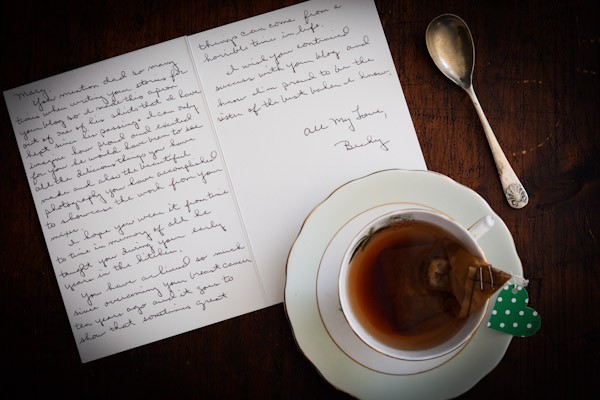 Mary,
You mention dad so many
times when writing your stories for
your blog so I made this apron
out of one of his shirts that I have
kept since his passing. I can only
imagine how proud and excited
for you he would have been to see
all the delicious things you have
made and also the beautiful
photography you have accomplished
to showcase the work from your
mixer.
I hope you wear it from time
to time in memory of all he
taught you during your early
years in the kitchen.
You have achieved so much
since overcoming your breast cancer
ten years ago and it goes to
show that sometimes great
things can come from a
horrible time in life.
I wish you continued
success with your blog and
know I'm proud to be the
sister of the best baker I know.
All My Love,
Becky